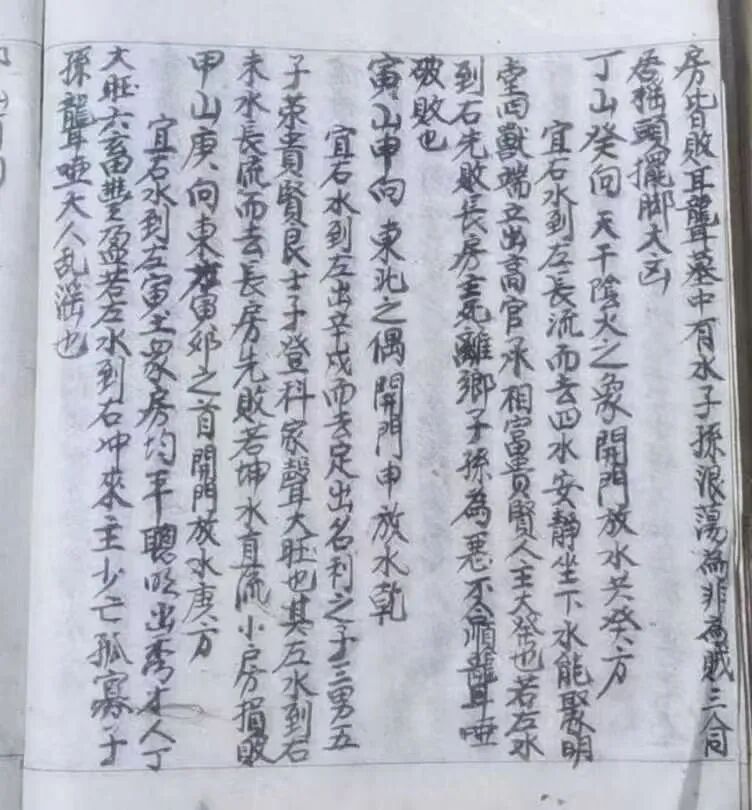 房皆敗耳聾墓中有水子孫浪蕩為非為賊三合同
卷搖頭擺脚大凶
丁山癸向 天干陰火之象開門放水共癸方
宜右水到左長流而去四水安静坐下水能聚明
堂四獸端立出高官承相富貴賢人主大發也若左水
到右先敗長房主死離鄉子孫為惡不合順聾啞
破敗也
寅山申向 東北之偶開門申放水乾
宜右水到左出辛戌而去定出名利之子三男五
子荣貴賢良士子登科家聲大旺也其左水到右
未水長流而去長房先敗若坤水直流小房損敗
甲山庚向東寅夘之首開門放水庚方
宜右水到左寅主衆房均平聰明出秀才人丁
大旺六畜豊盈若左水到右冲來主少亡孤寡子
孫聾啞夭人乱淫也